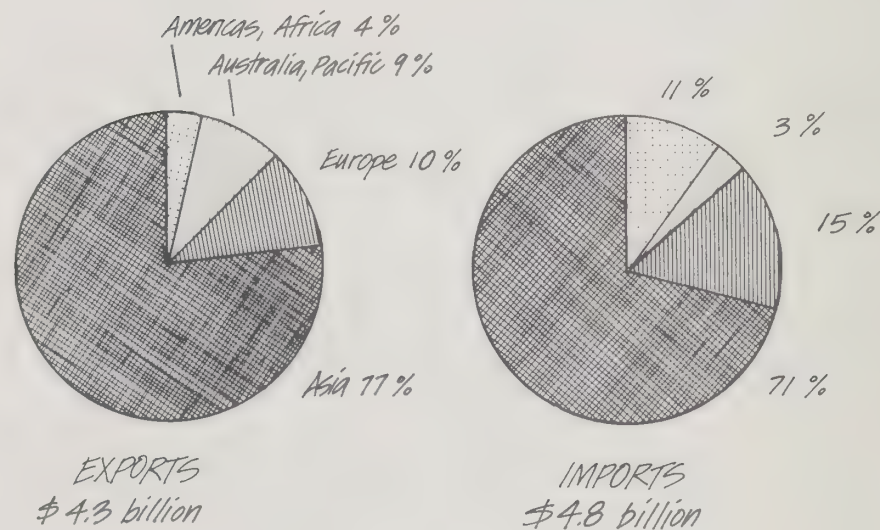 Americas, Africa 4%
Australia, Pacific 9%
Europe 10%
Asia 77%
EXPORTS
$4.3 billion
11%
3%
15%
71%
IMPORTS
$4.8 billion